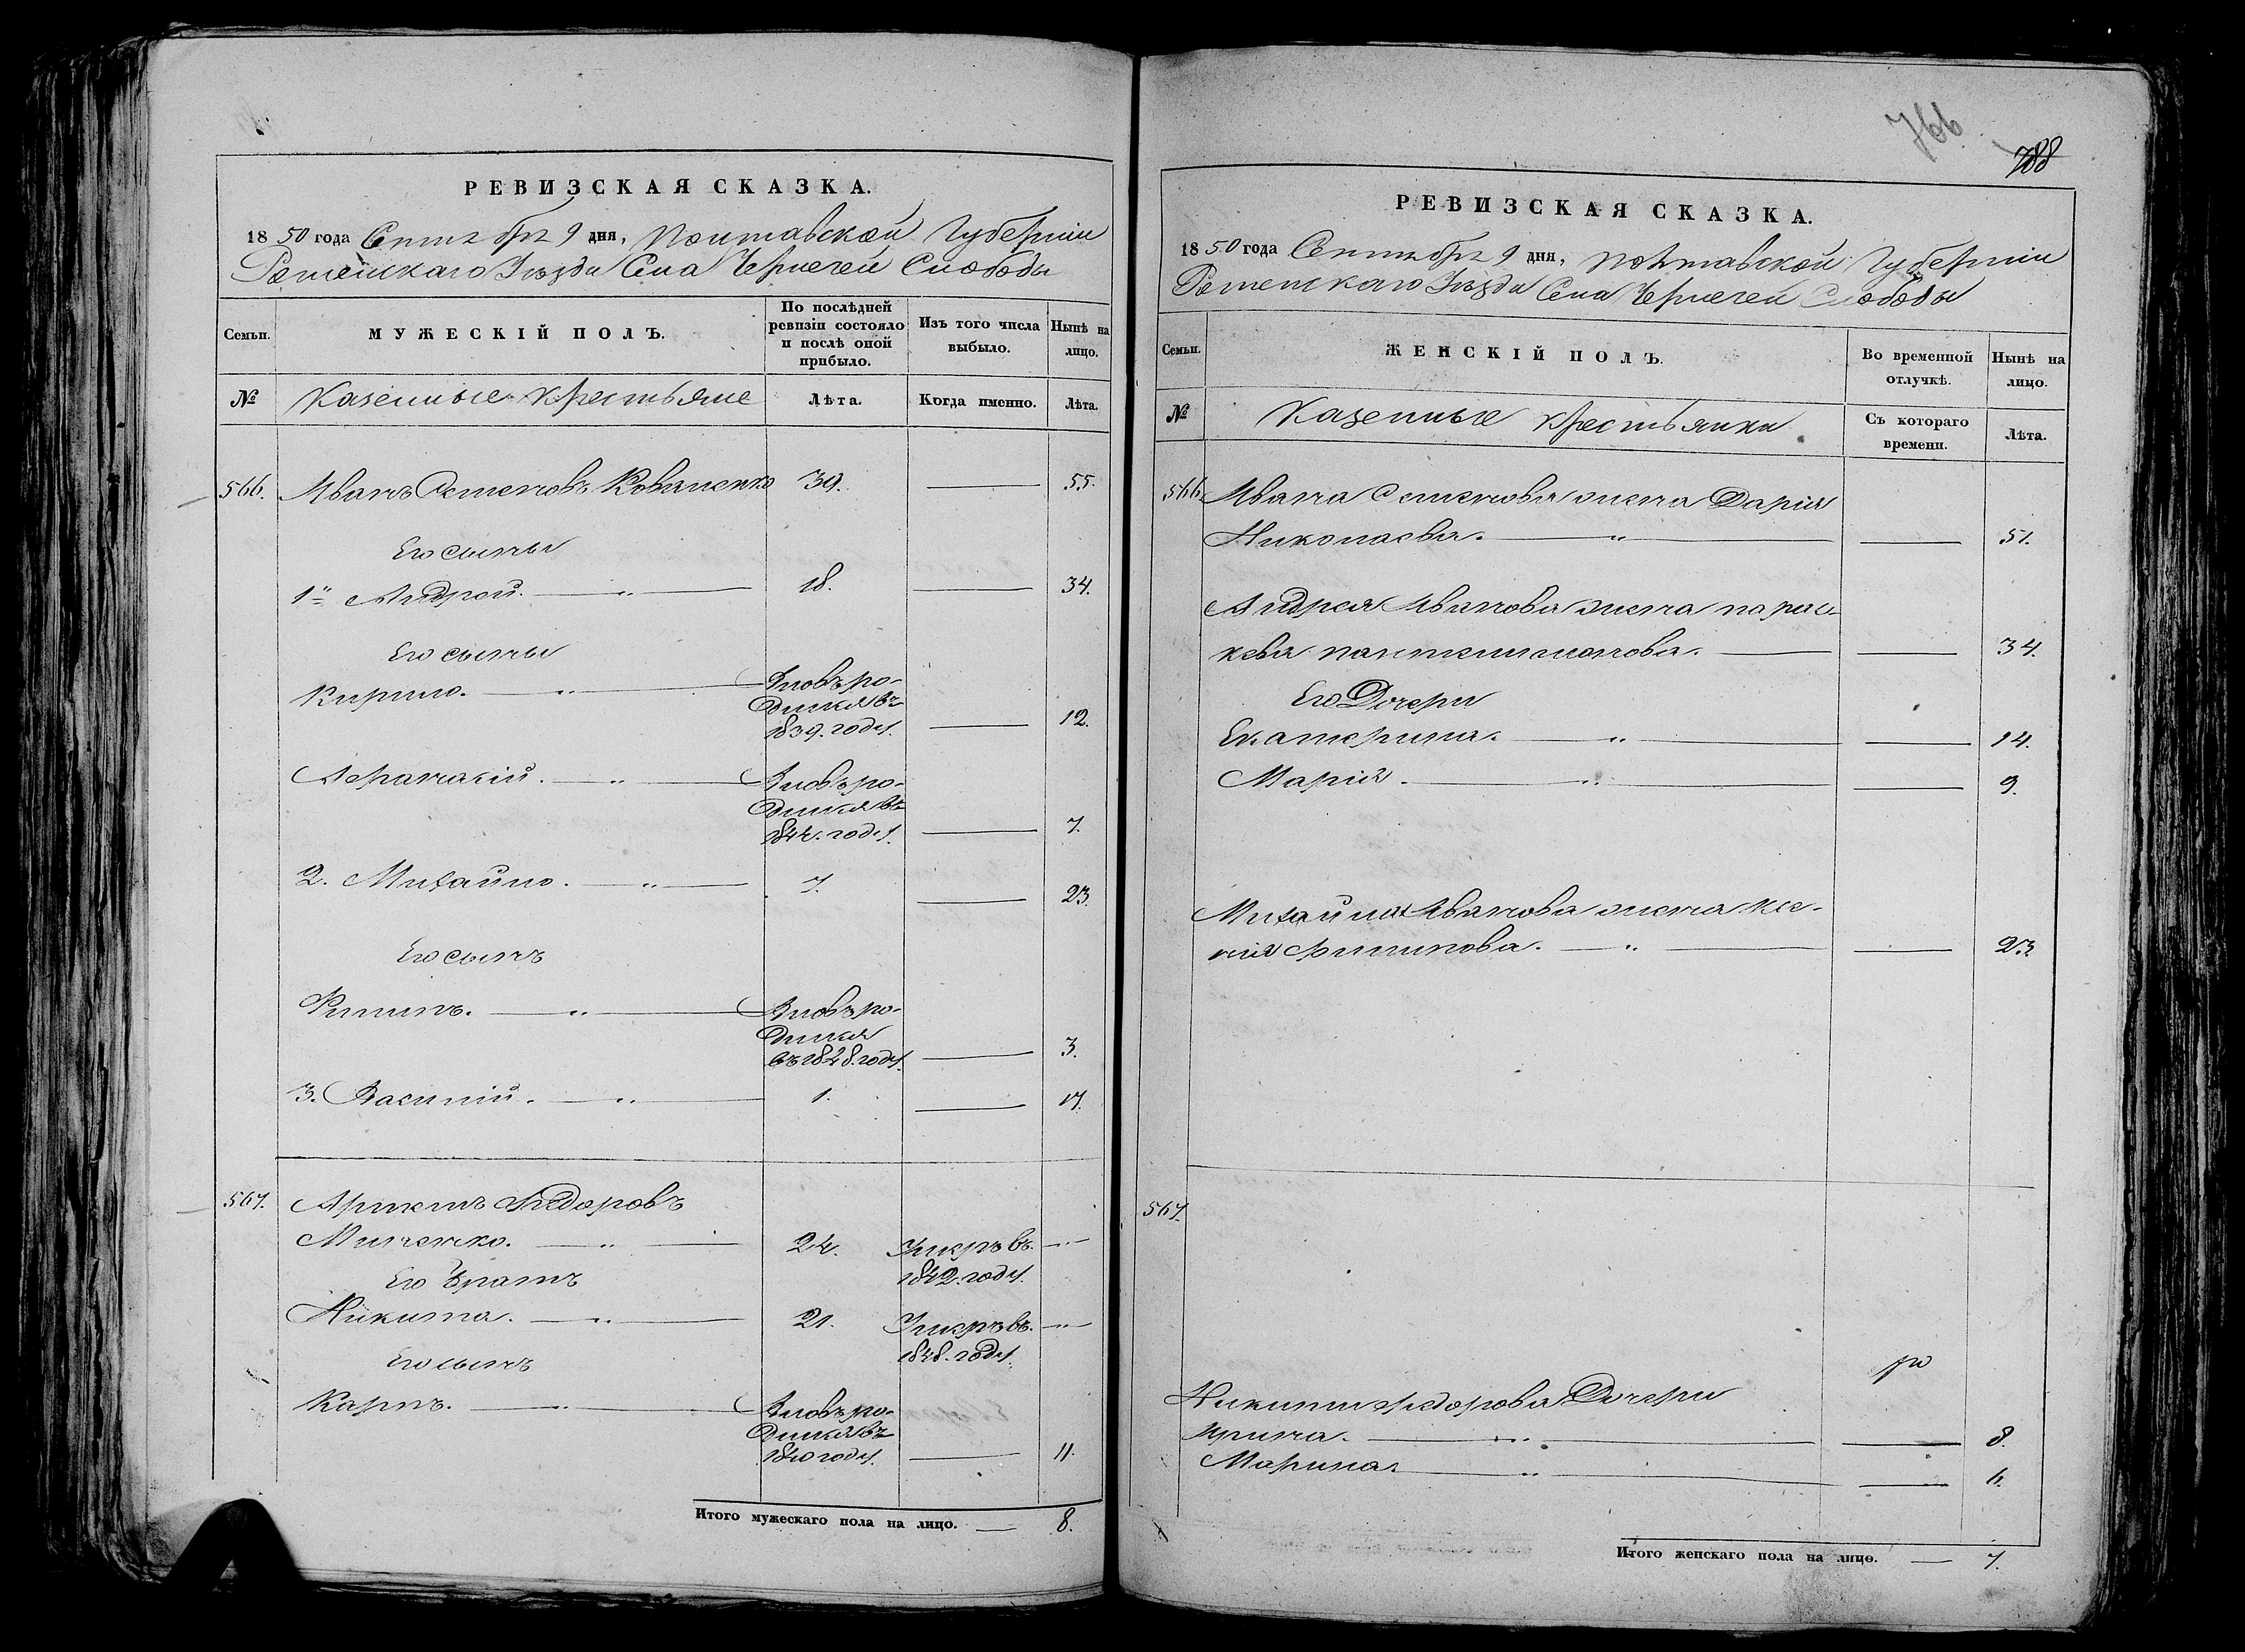 РЕВИЗСКАЯ СКАЗКА.
1850 года Сентября 9 дня, Полтавской Губерніи
Роменскаго Уѣзда Села Чернечей Слободы
Семьи.
МУЖЕСКІЙ ПОЛЪ.
По послѣдней ревизіи состояло и послѣ оной прибыло.
Изъ того числа выбыло.
Нынѣ на лицо.
№
Казенные Крестьяне
Лѣта.
Когда именно.
Лѣта.
566. Иванъ Семеновъ Коваленко 39. — 55.
Его сыны
1й Андрей. — „ — 18. — 34.
Его сыны
Кирило. — „ — Вновь ро-
дился въ
1839. году. — 12.
Афанасій. — „ — Вновь ро-
дился въ
1844. году. — 7.
2. Михайло. — „ — 7. — 23.
Его сынъ
Филипъ. — „ — Вновь ро-
дился
въ 1848. году. — 3.
3. Василий. — „ — 1. — 17.
567. Архипъ Федоровъ
Миненко. — „ — 24. Умеръ въ — „ —
1842. году.
Его братъ
Никита. — „ — 21. Умеръ въ — „ —
1848. году.
Его сынъ
Карпъ. — „ — Вновь ро-
дился въ
1840 году. — 11.
Итого мужескаго пола на лицо. — 8.
766
788
РЕВИЗСКАЯ СКАЗКА.
1850 года Сентября 9 дня, Полтавской Губерніи
Роменскаго Уѣзда Села Чернечей Слободы
Семьи.
ЖЕНСКІЙ ПОЛЪ.
Во временной отлучкѣ.
Нынѣ на лицо.
№
Казенные крестьянки
Съ котораго времени.
Лѣта.
566. Ивана Семенова жена Дарія
Николаева. — „ — 51.
Андрея Иванова жена Парас-
кева Пантелимонова. — 34.
Его Дочери
Екатерина. — „ — 14.
Марія. — „ — 9.
Михайла Иванова жена Ксе-
нія Филипова. — „ — 23.
567.
Никиты Федорова Дочери
Ирина. — „ — 8.
Марина. — „ — 6.
Итого женскаго пола на лицо. — 7.